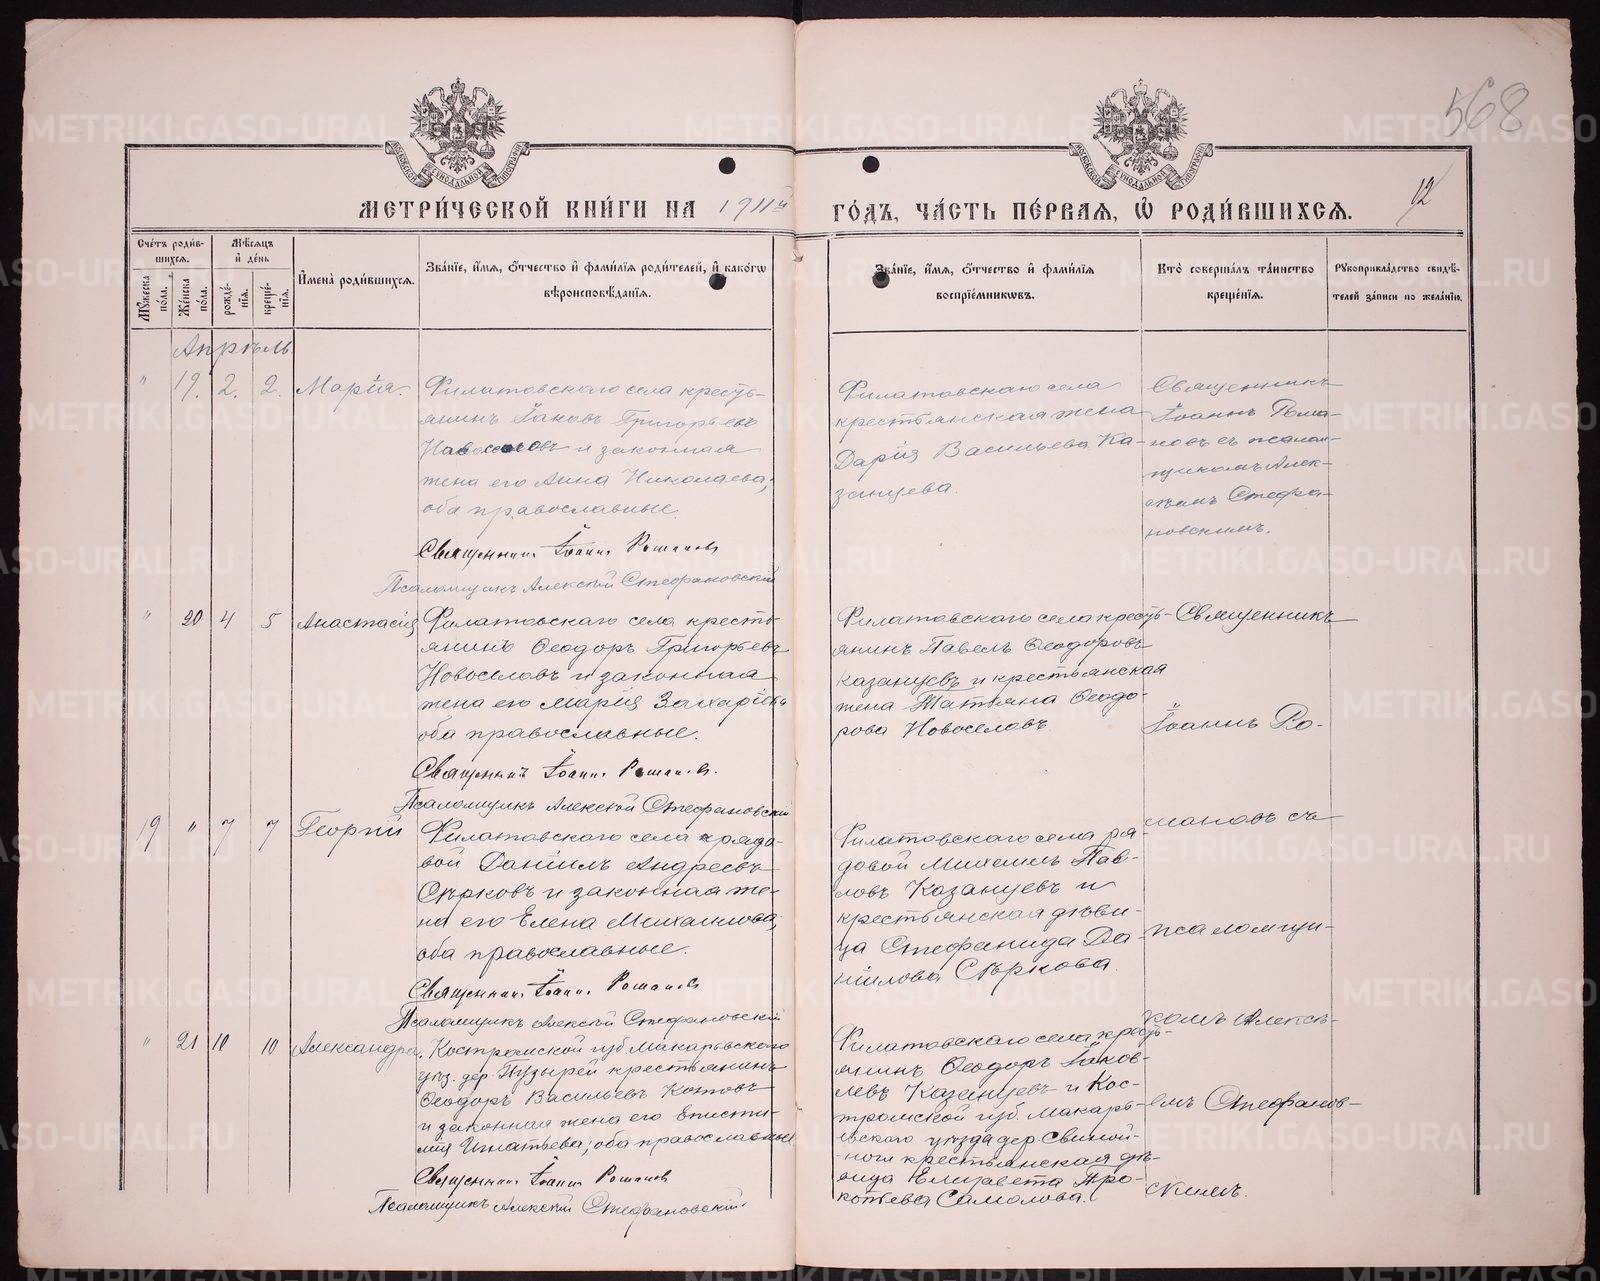 568
12
МОСКОВСКОЙ СѴНОДАЛЬНОЙ ТИПОГРАФІИ
МОСКОВСКОЙ СѴНОДАЛЬНОЙ ТИПОГРАФІИ
МЕТРИ́ЧЕСКОЙ КНИ́ГИ НА 1911й ГО́ДЪ, ЧА́СТЬ ПЕ́РВАЯ, Ѽ РОДИ́ВШИХСЯ.
Сче́тъ роди́в-
шихся.
Мѣ́сяцъ
и҆ де́нь
Мꙋ́жеска
по́ла.
Же́нска
по́ла.
рожде́-
нїя.
креще́-
нїя.
И҆мена̀ роди́вшихся.
Зва́нїе, и҆́мя, ѻ҆́тчество и҆ фами́лїѧ роди́телей, и҆ како́гѡ
вѣроисповѣ́данїя.
Зва́нїе, и҆́мя, ѻ҆́тчество и҆ фами́лїя
воспрїе́мникѡвъ.
Кто̀ соверша́лъ та́инство
креще́нїя.
Рꙋкоприкла́дство свидѣ́-
телей за́писи по жела́нїю.
Апрѣль
" 19. 2. 2. Марія.
Филатовскаго села кресть-
янинъ Іаковъ Григорьевъ
Новоселовъ и законная
жена его Анна Николаева,
оба православные.
Священникъ Іоаннъ Романовъ
Псаломщикъ Алексій Стефановскій
Филатовскаго села
крестьянская жена
Дарія Васильева Ка-
занцева.
Священникъ
Іоаннъ Рома-
новъ съ псалом-
щикомъ Алек-
сѣемъ Стефа-
новскимъ.
" 20 4 5 Анастасія
Филатовскаго села кресть-
янинъ Ѳеодоръ Григорьевъ
Новоселовъ и законная
жена его Марія Захаріева
оба православные.
Священникъ Іоаннъ Романовъ.
Псаломщикъ Алексій Стефановскій
Филатовскаго села кресть-
янинъ Павелъ Ѳеодоровъ
Казанцевъ и крестьянская
жена Татьяна Ѳеодо-
рова Новоселовъ
Священникъ
Іоаннъ Ро-
19 " 7 7 Георгій
Филатовскаго села рядо-
вой Даніилъ Андреевъ
Сѣрковъ и законная же-
на его Елена Михаилова,
оба православные.
Священникъ Іоаннъ Романовъ
Псаломщикъ Алексій Стефановскій
Филатовскаго села ря-
довой Михаилъ Пав-
ловъ Казанцевъ и
крестьянская дѣви-
ца Стефанида Да-
ніилова Сѣркова.
мановъ съ
псаломщи-
" 21 10 10 Александра.
Костромской губ. Макарьевскаго
уѣз. дер. Пузырей крестьянинъ
Ѳеодоръ Васильевъ Котовъ
и законная жена его Еписти-
мія Игнатьева; оба православные
Священникъ Іоаннъ Романовъ
Псаломщикъ Алексій Стефановскій.
Филатовскаго села кресть-
янинъ Ѳеодоръ Іаков-
левъ Казанцевъ и Кос-
тромской губ. Макарь-
евскаго уѣзда дер.
крестьянская дѣ-
вица Елизавета Про-
копьева Самолова.
комъ Алексѣ-
емъ Стефанов-
скимъ.